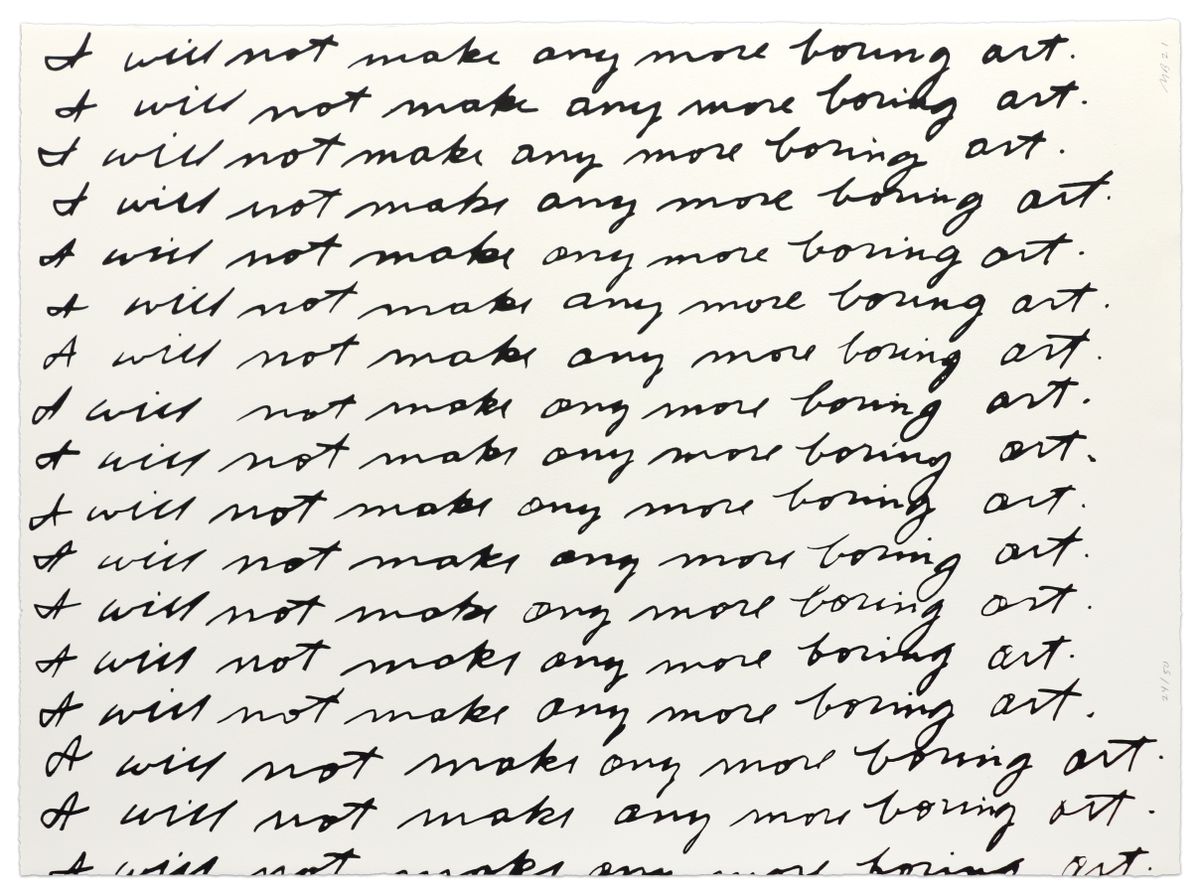 I will not make any more boring art.
I will not make any more boring art.
I will not make any more boring art.
I will not make any more boring art.
I will not make any more boring art.
I will not make any more boring art.
I will not make any more boring art.
I will not make any more boring art.
I will not make any more boring art.
I will not make any more boring art.
I will not make any more boring art.
I will not make any more boring art.
I will not make any more boring art.
I will not make any more boring art.
I will not make any more boring art.
I will not make any more boring art.
I will not make any more boring art.
24/50